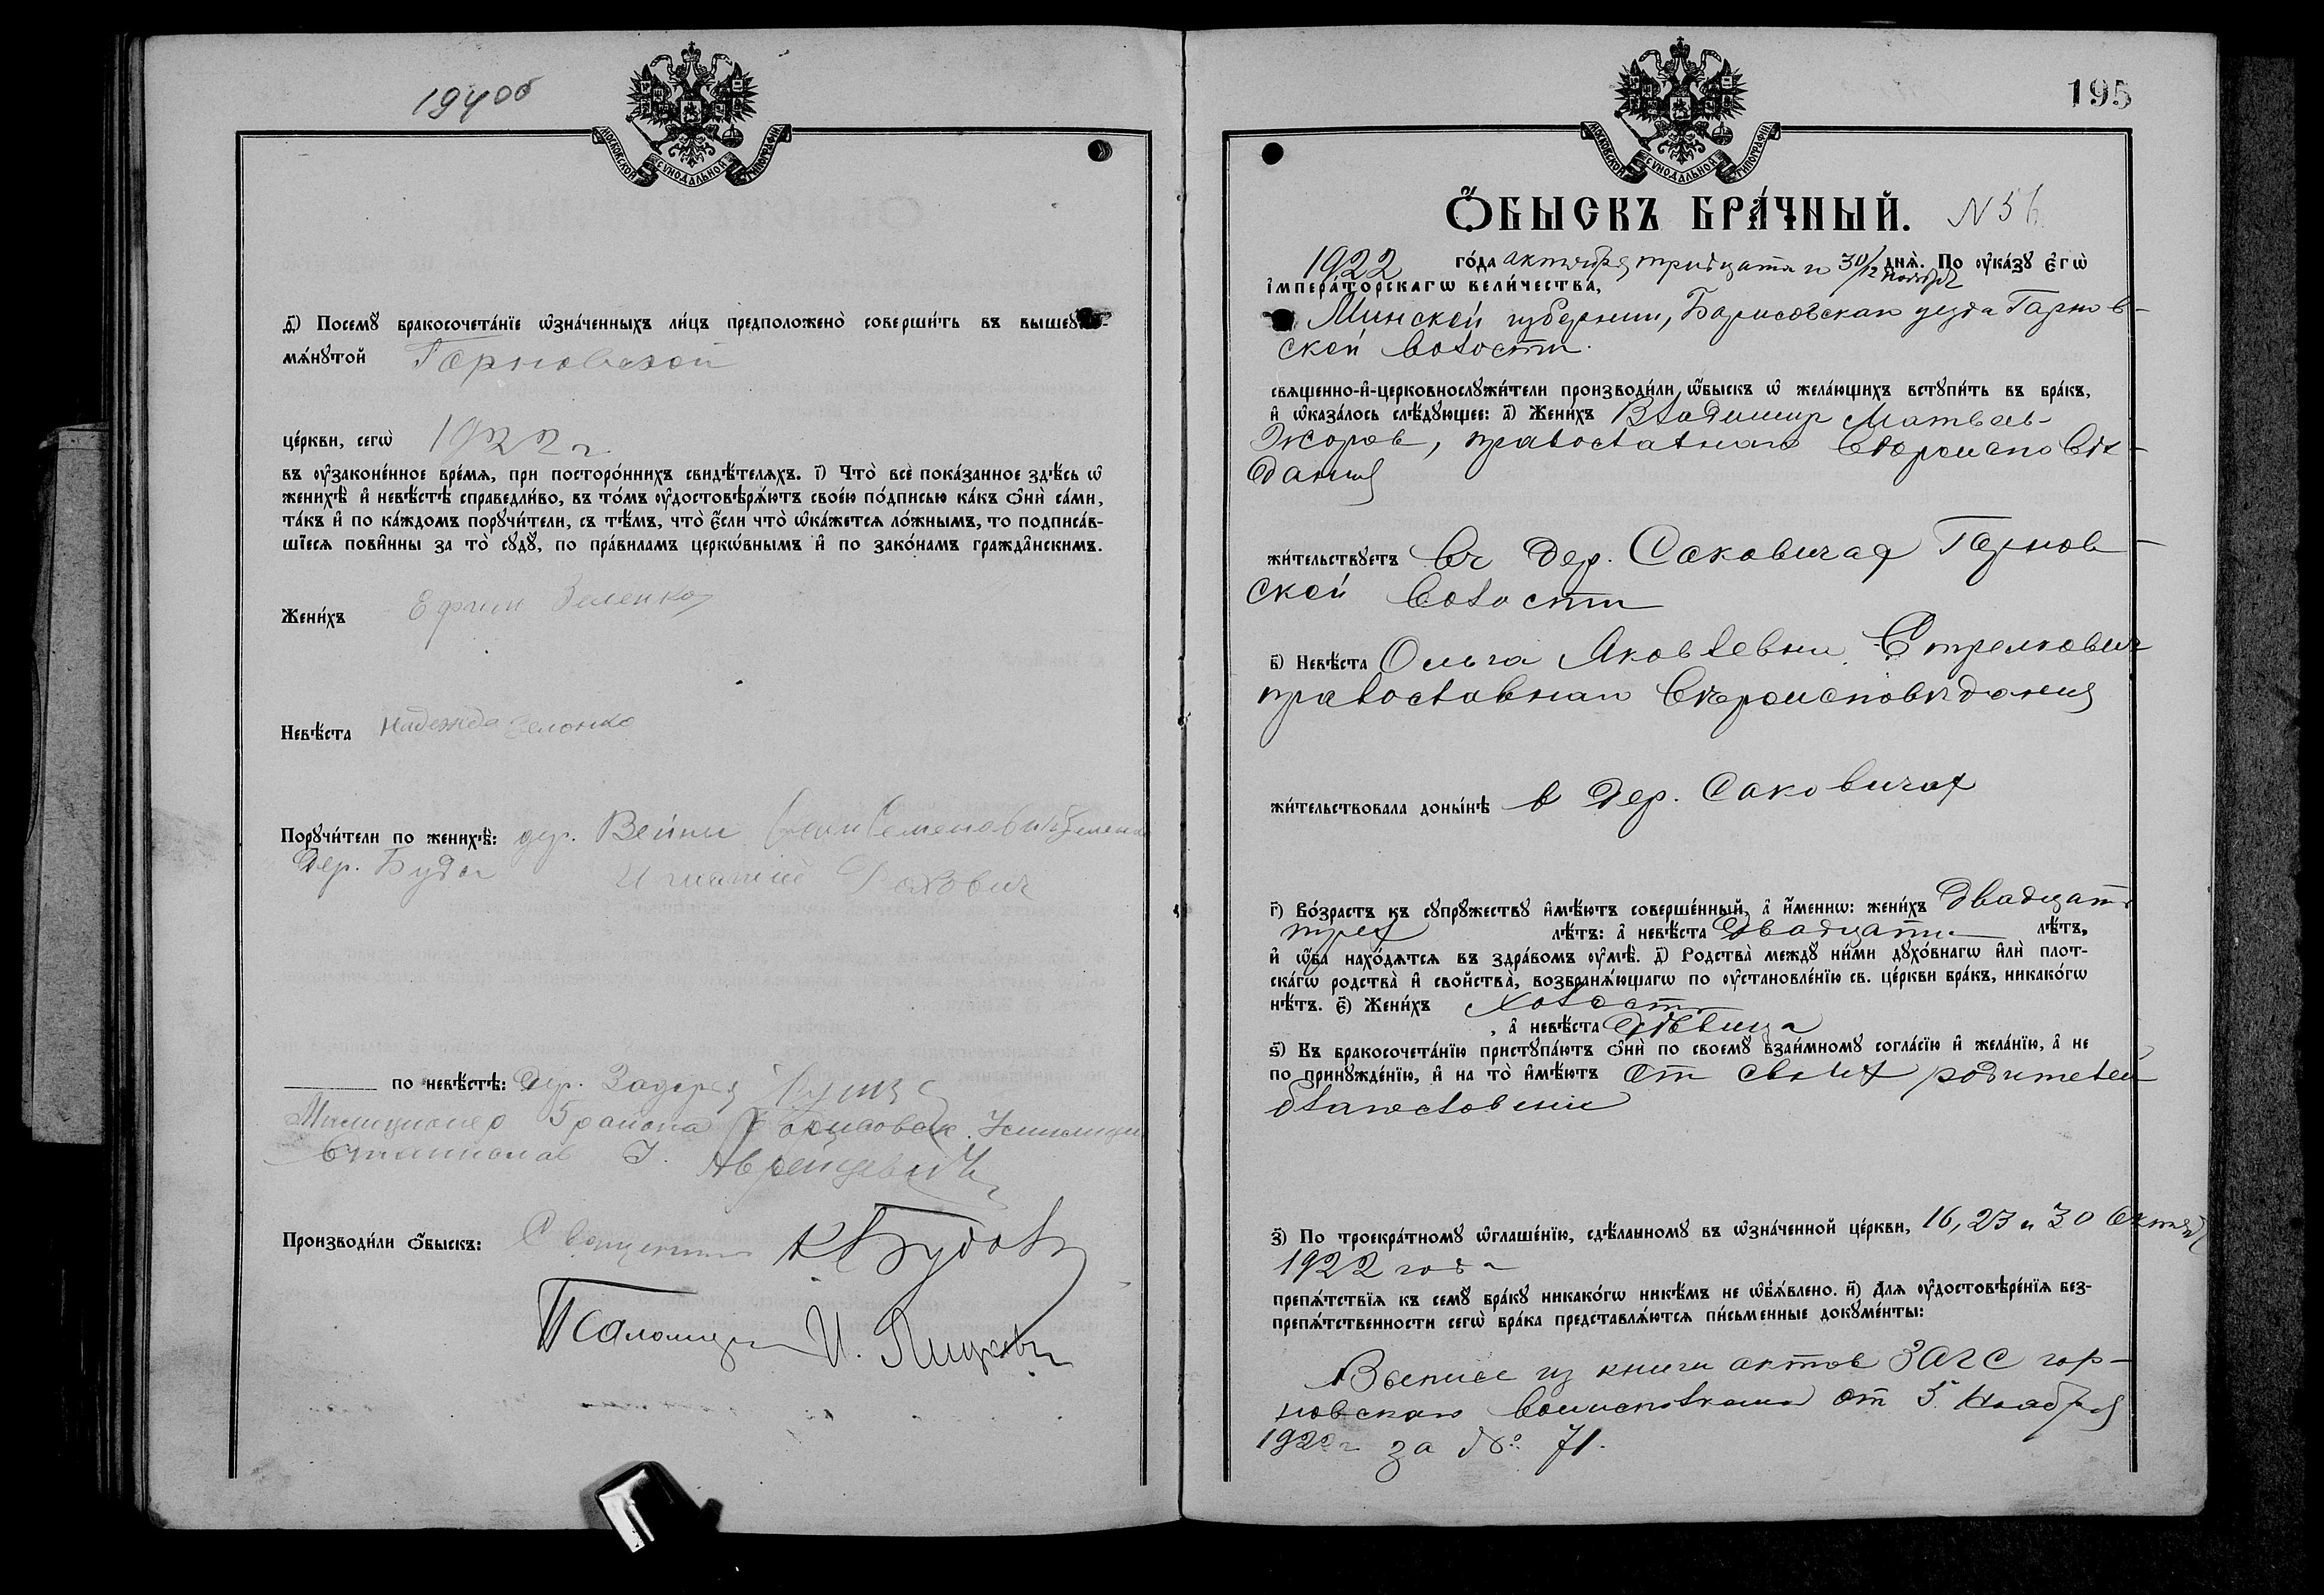 194об
МОСКОВСКОЙ СУНОДАЛЬНОЙ ТИПОГРАФІИ
ѳ҃) Посемꙋ̀ бракосочета́нїе ѡ҆зна́ченныхъ ли́цъ предположено̀ соверши́ть въ вышеꙋпо-
мѧ́нꙋтой Горновской
це́ркви, сегѡ̀ 1922 г
въ оу҆законе́нное вре́мѧ, при посторо́ннихъ свидѣ́телѧхъ. і҃) Что̀ всѐ пока́занное здѣ́сь ѡ҆
женихѣ̀ и҆ невѣ́стѣ справедли́во, въ то́мъ оу҆достовѣрѧ́ютъ свое́ю по́дписью ка́къ ѻ҆нѝ са́ми,
та́къ и҆ по ка́ждомъ порꙋчи́тели, съ тѣ́мъ, что̀ є҆́сли что̀ ѡ҆ка́жетсѧ ло́жнымъ, то подписа́в-
шїесѧ пови́нны за то̀ сꙋдꙋ̀, по пра́виламъ церкѡ́внымъ и҆ по зако́намъ гражда́нскимъ.
Жени́хъ Ефим Зеленко
Невѣ́ста Надежда Зелонко
Порꙋчи́тели по женихѣ̀: дер. Вейны Семенович
Дер. Буда Игнатий
по невѣ́стѣ: Дер.
Милиционер 5 района
Производи́ли ѻ҆́быскъ: Священник К Будо
Псаломщ И.
195
МОСКОВСКОЙ СУНОДАЛЬНОЙ ТИПОГРАФІИ
Ѻ҆́БЫСКЪ БРА́ЧНЫЙ. N 56
1922 го́да актября тридцати 30/12 ноября днѧ̀. По оу҆ка́зꙋ є҆гѡ̀
і҆мпера́торскагѡ вели́чества,
Минской губернии, Борисовскаго уезда Гарнов-
ской волости.
свѧщенно-и҆-церковнослꙋжи́тели производи́ли ѡ҆́быскъ ѡ҆ жела́ющихъ встꙋпи́ть въ бра́къ,
и҆ ѡ҆каза́лось слѣ́дꙋющее: а҃) Жени́хъ Владимир Матвеев-
православнаго вероисповѣ-
дания
жи́тельствꙋетъ въ дер. Саковичах Горнов-
ской волости
в҃) Невѣ́ста Ольга Яковлевна Стрелкович
православнаго вероисповедания
жи́тельствовала доны́нѣ в дер. Саковичах
г҃) Во́зрастъ къ сꙋпрꙋ́жествꙋ и҆мѣ́ютъ соверше́нный, а҆ и҆́меннѡ: жени́хъ двадцати
трех лѣ́тъ: а҆ невѣ́ста двадцати лѣ́тъ,
и҆ ѡ҆́ба нахо́дѧтсѧ въ здра́вомъ оу҆мѣ̀. д҃) Родства̀ междꙋ̀ ни́ми дꙋхо́внагѡ и҆лѝ плот-
ска́гѡ родства̀ и҆ свойства̀, возбранѧ́ющагѡ по оу҆становле́нїю св. це́ркви бра́къ, никако́гѡ
нѣ́тъ. є҃) Жени́хъ холост
, а҆ невѣ́ста дѣвица
ѕ҃) Къ бракосочета́нїю пристꙋпа́ютъ ѻ҆нѝ по своемꙋ̀ взаи́мномꙋ согла́сїю и҆ жела́нїю, а҆ не
по принꙋжде́нїю, и҆ на то̀ и҆мѣ́ютъ от своих родителей
благословение
з҃) По троекра́тномꙋ ѡ҆глаше́нїю, сдѣ́ланномꙋ въ ѡ҆зна́ченной це́ркви, 16, 23 и 30 Октяб
1922 года
препѧ́тствїѧ къ семꙋ̀ бра́кꙋ никако́гѡ никѣ́мъ не ѡ҆бъѧ́влено. и҃) Длѧ оу҆достовѣре́нїѧ без-
препѧ́тственности сегѡ̀ бра́ка представлѧ́ютсѧ пи́сьменные докꙋме́нты:
Выписе из книги актов ЗАГС гор-
новскаго волисполкома от 5 Ноября
1922 г за №: 71.